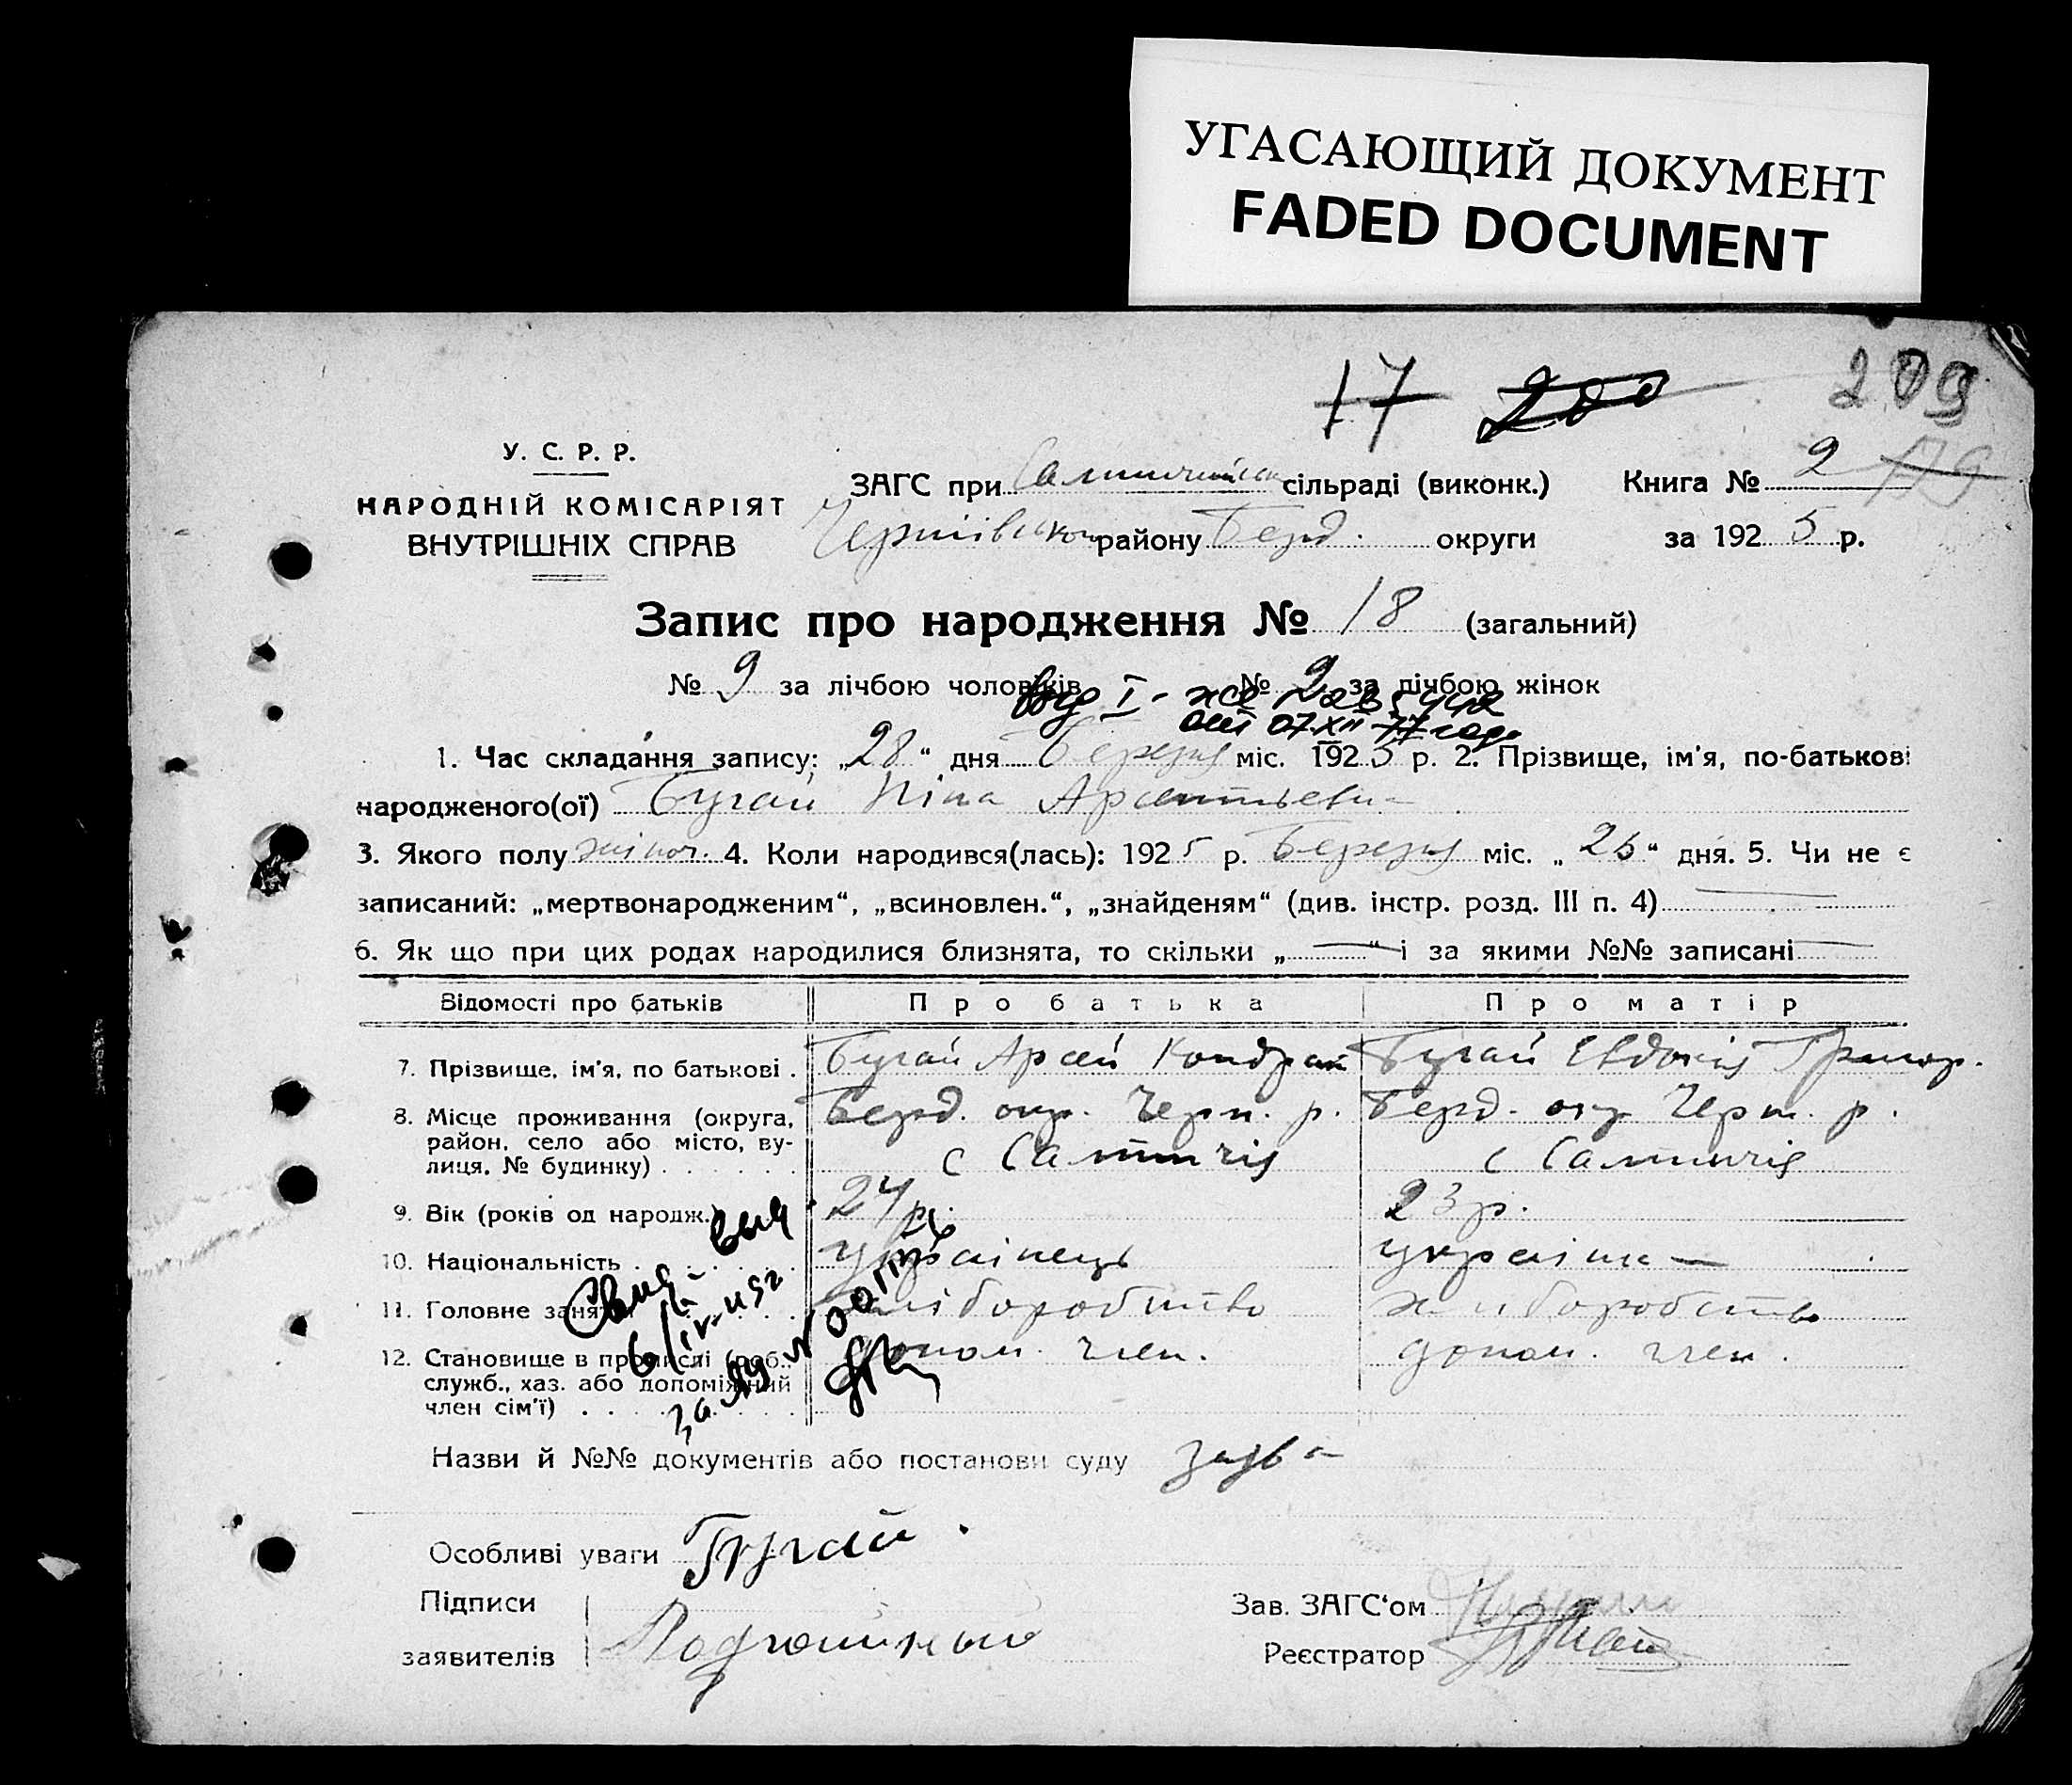 УГАСАЮЩИЙ ДОКУМЕНТ
FADED DOCUMENT
17 200 209
У. С. Р. Р.
НАРОДНІЙ КОМІСАРІЯТ
ВНУТРІШНІХ СПРАВ
ЗАГС при сільраді (виконк.) Книга № 2
району Берд. округи за 1925 р.
Запис про народження № 18 (загальний)
№ 9 за лічбою чоловіків № 9 за лічбою жінок
1. Час складання запису: „28“ дня Березня міс. 1925 р. 2. Прізвище, ім'я, по-батькові
народженого(ої) Бугай Ніна Арсентьевна
3. Якого полу жіноч. 4. Коли народився(лась): 1925 р. Березня міс. „26“ дня. 5. Чи не є
записаний: „мертвонародженим“, „всиновлен.“, „знайденям“ (див. інстр. розд. III п. 4)
6. Як що при цих родах народилися близнята, то скільки „—“ і за якими №№ записані —
Відомості про батьків Про батька Про матір
7. Прізвище, ім'я, по батькові . Бугай Арсей Кондрат Бугай Евдокія Григор.
8. Місце проживання (округа, Берд. окр. Черн. р. Берд. окр Черн. р.
район, село або місто, ву-
лиця, № будинку) . . . . . . с Салтичія с Салтичія
9. Вік (років од народж.) 24 р. 23 р.
10. Національність . . . . . українець українка
11. Головне заняття . . . хліборобство хліборобство
12. Становище в промислі (роб., допом. член. допом. член.
служб., хаз. або допоміжний
член сім'ї) . . . . . . .
Назви й №№ документів або постанови суду заява
Особливі уваги Бугай.
Підписи Зав. ЗАГС'ом
заявителів Реєстратор